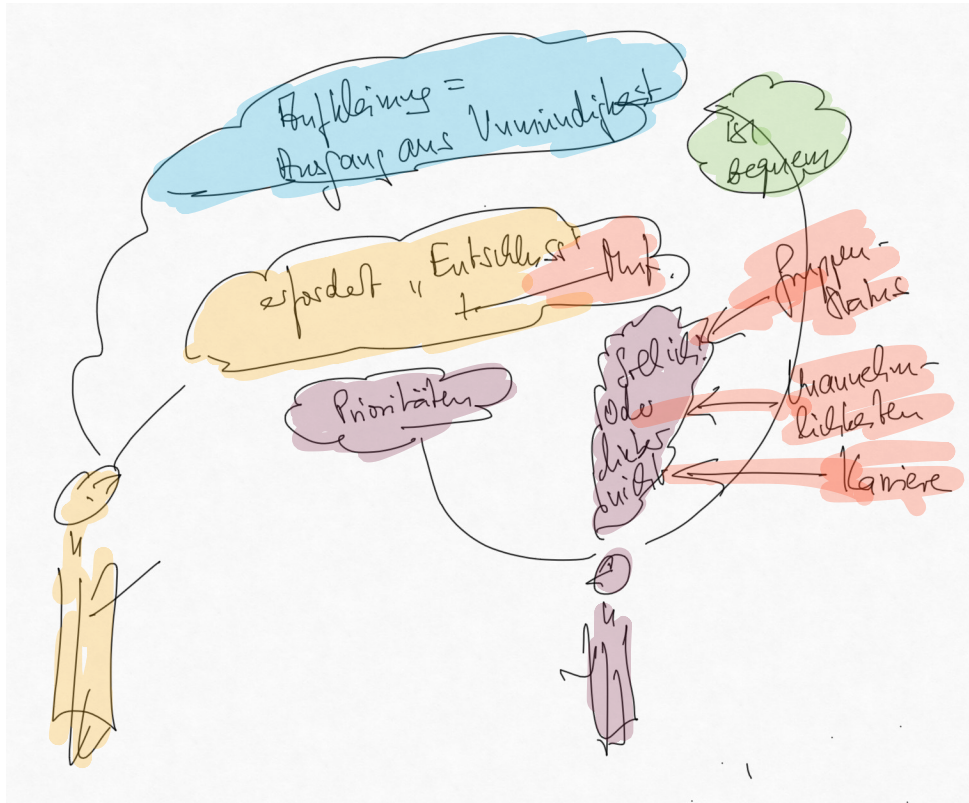 Aufklärung =
Ausgang aus Unmündigkeit
ist
bequem
erfordert „Entschluss"
+ Mut.
Gruppen-
status
Prioritäten
soll ich?
Oder
lieber
nicht
Unannehm-
lichkeiten
Karriere